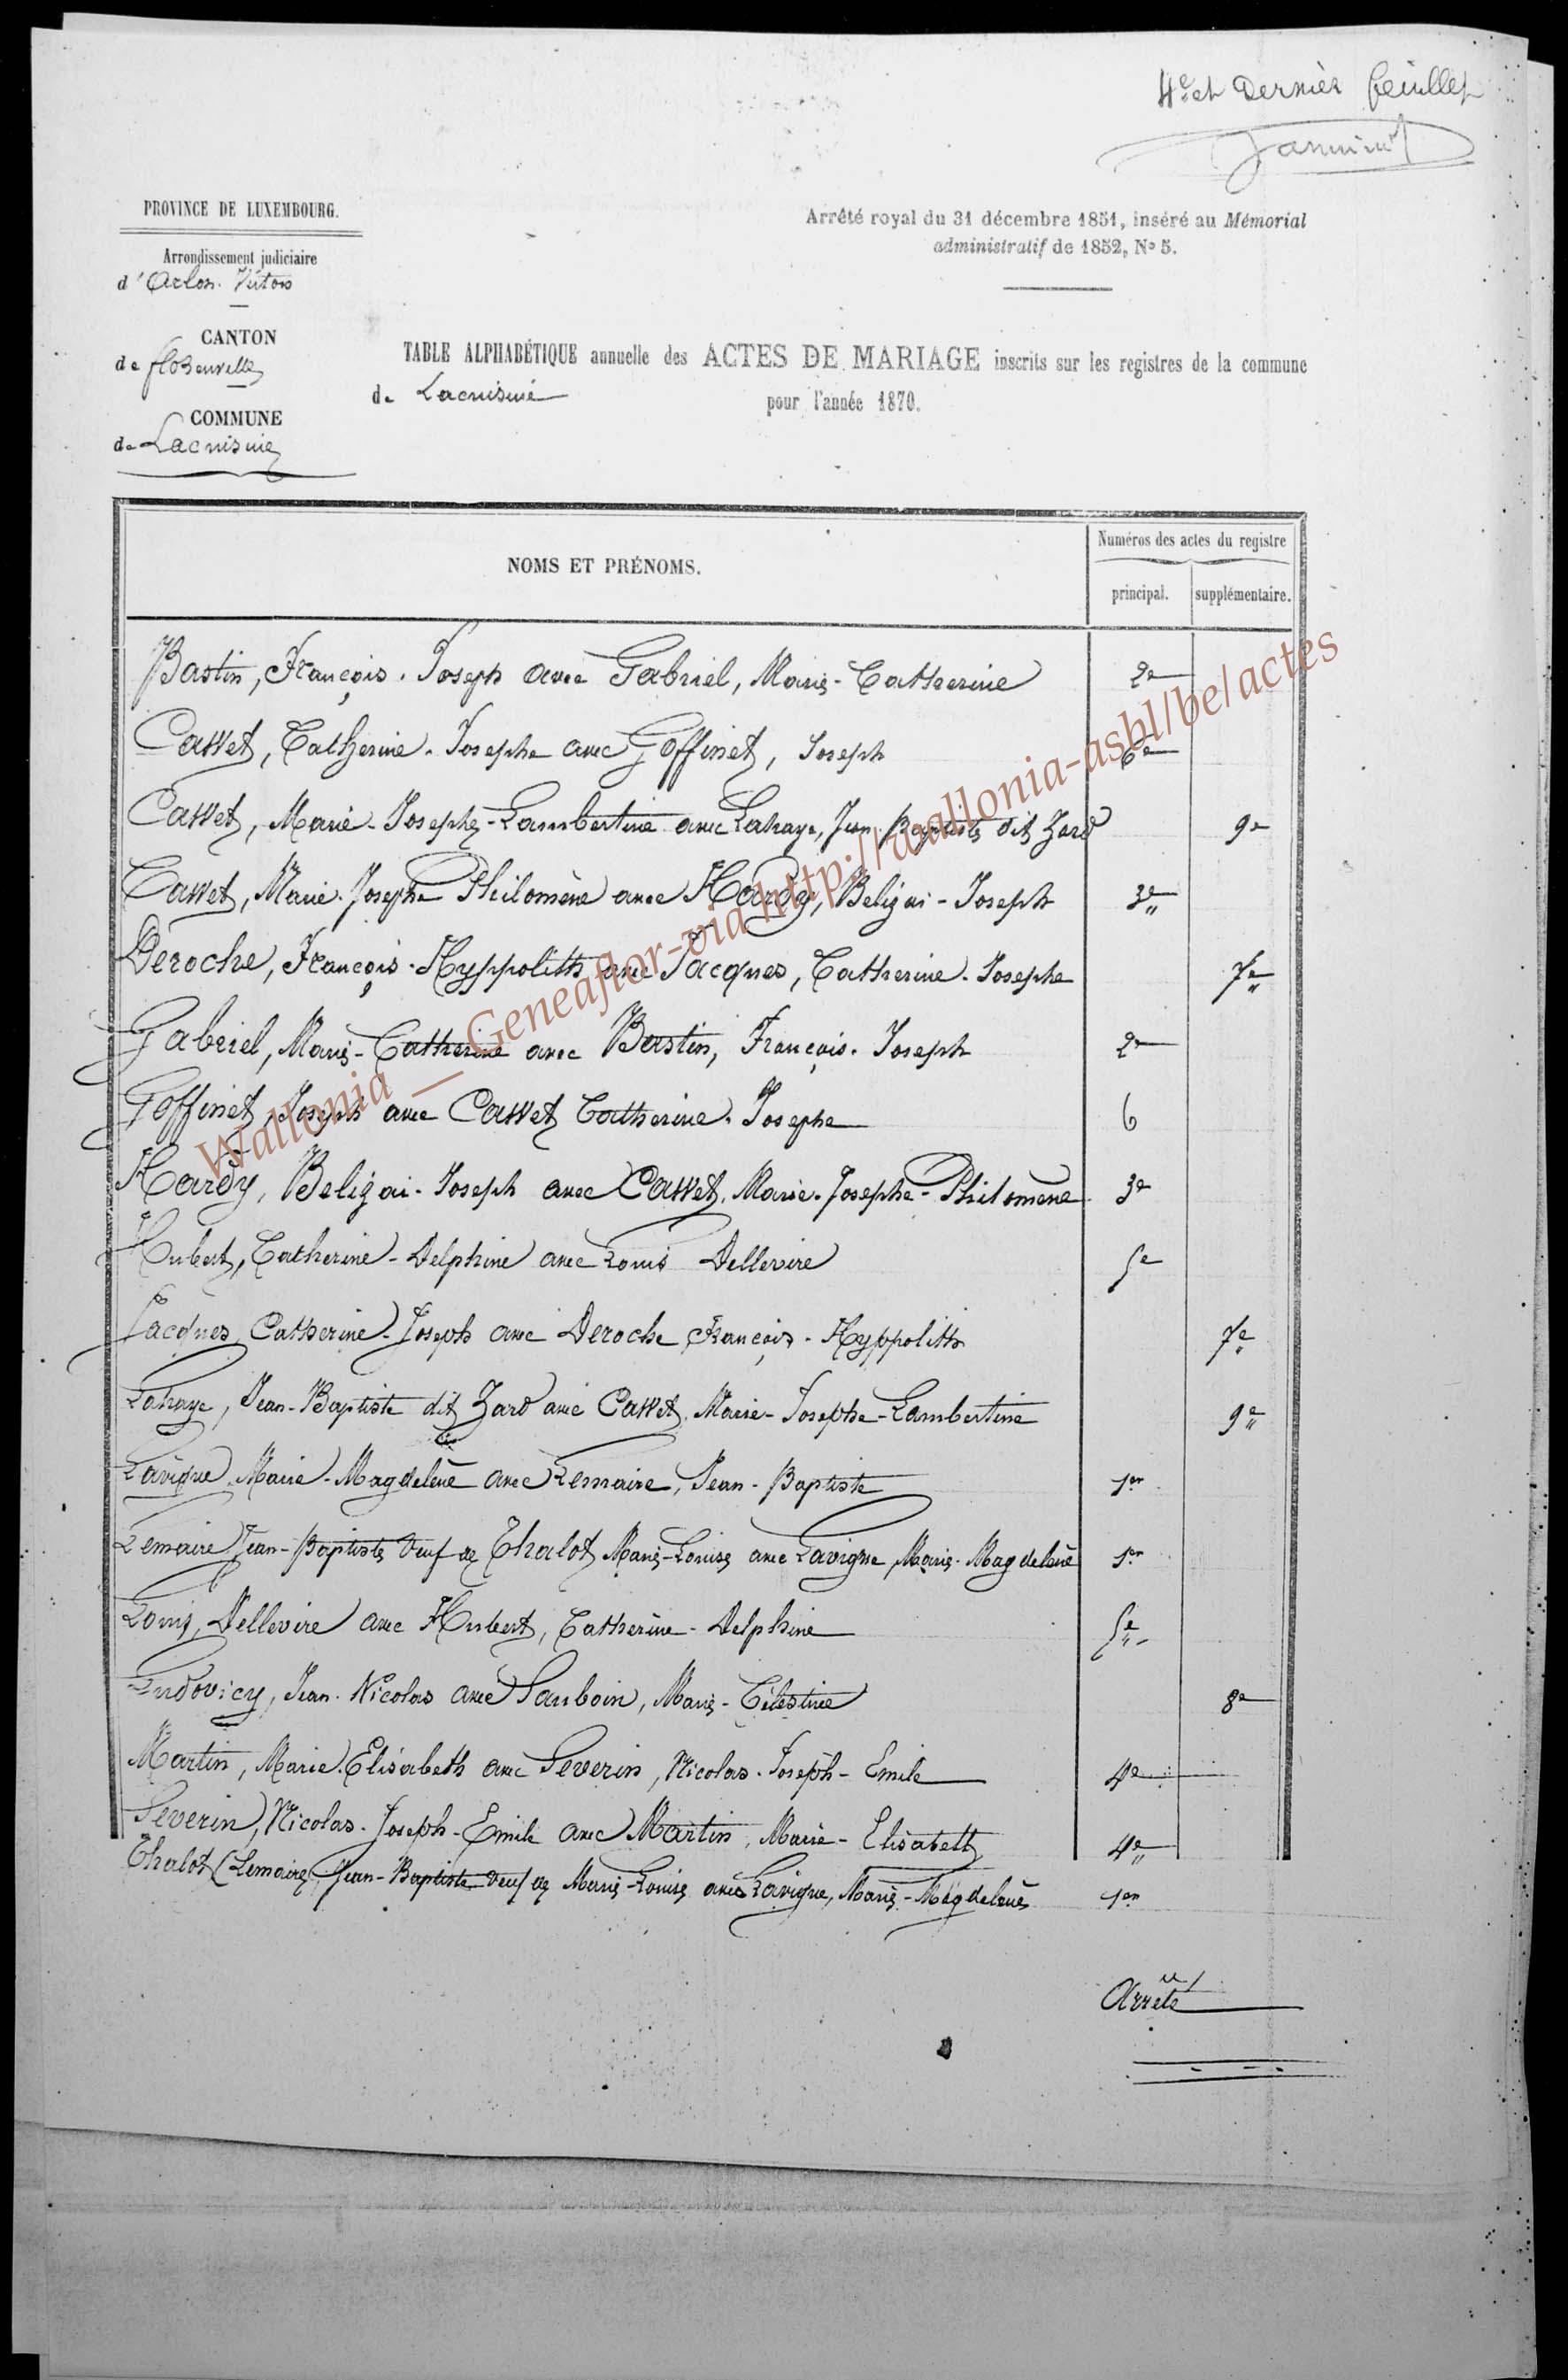 4e et Dernièr feuillet
Janninet
PROVINCE DE LUXEMBOURG.
Arrondissement judiciaire
d'Arlon. Virton
CANTON
de florenville
COMMUNE
de Lacuisine
Arrêté royal du 31 décembre 1851, inséré au Mémorial
administratif de 1852, No 5.
TABLE ALPHABÉTIQUE annuelle des ACTES DE MARIAGE inscrits sur les registres de la commune
de Lacuisine pour l'année 1870.
NOMS ET PRÉNOMS.
Numéros des actes du registre
principal. supplémentaire.
Bastin, François. Joseph avec Gabriel, Marie-Catherine 2e
Casset, Catherine-Josephe avec Goffinet, Joseph 6e
Casset, Marie-Josephe-Lambertine avec Lahaye, Jean Baptiste dit Zard 9e
Casset, Marie-Josephe Philomène avec Hardy, Belizai-Joseph 3e
Deroche, François-Hyppolith avec Jacques, Catherine-Josephe 7e
Gabriel, Marie-Catherine avec Bastin, François. Joseph 2e
Goffinet, Joseph avec Casset Catherine-Josephe 6
Hardy, Belizai-Joseph avec Casset, Marie-Josephe-Philomène 3e
Hubert, Catherine-Delphine avec Louis Dellevire 5e
Jacques, Catherine-Joseph avec Deroche François-Hyppolith 7e
Lahaye, Jean-Baptiste dit Zard avec Casset, Marie-Josephe-Lambertine 9e
Lavigne, Marie-Magdeleine avec Lemaire, Jean-Baptiste 1er
Lemaire Jean-Baptiste Veuf de Thalot Marie-Louise avec Lavigne, Marie-Magdeleine 1er
Louis, Dellevire avec Hubert, Catherine-Delphine 5e
Ludovicy, Jean-Nicolas avec Sauboin, Marie-Célestine 8e
Martin, Marie-Elisabeth avec Severin, Nicolas-Joseph-Emile 4e
Severin, Nicolas-Joseph-Emile avec Martin, Marie-Elisabeth 4e
Thalot (Lemaire, Jean-Baptiste Veuf de Marie-Louise avec Lavigne, Marie-Magdeleine 1er
Arrêté
Wallonia _ Geneaflor-via http://wallonia-asbl/be/actes